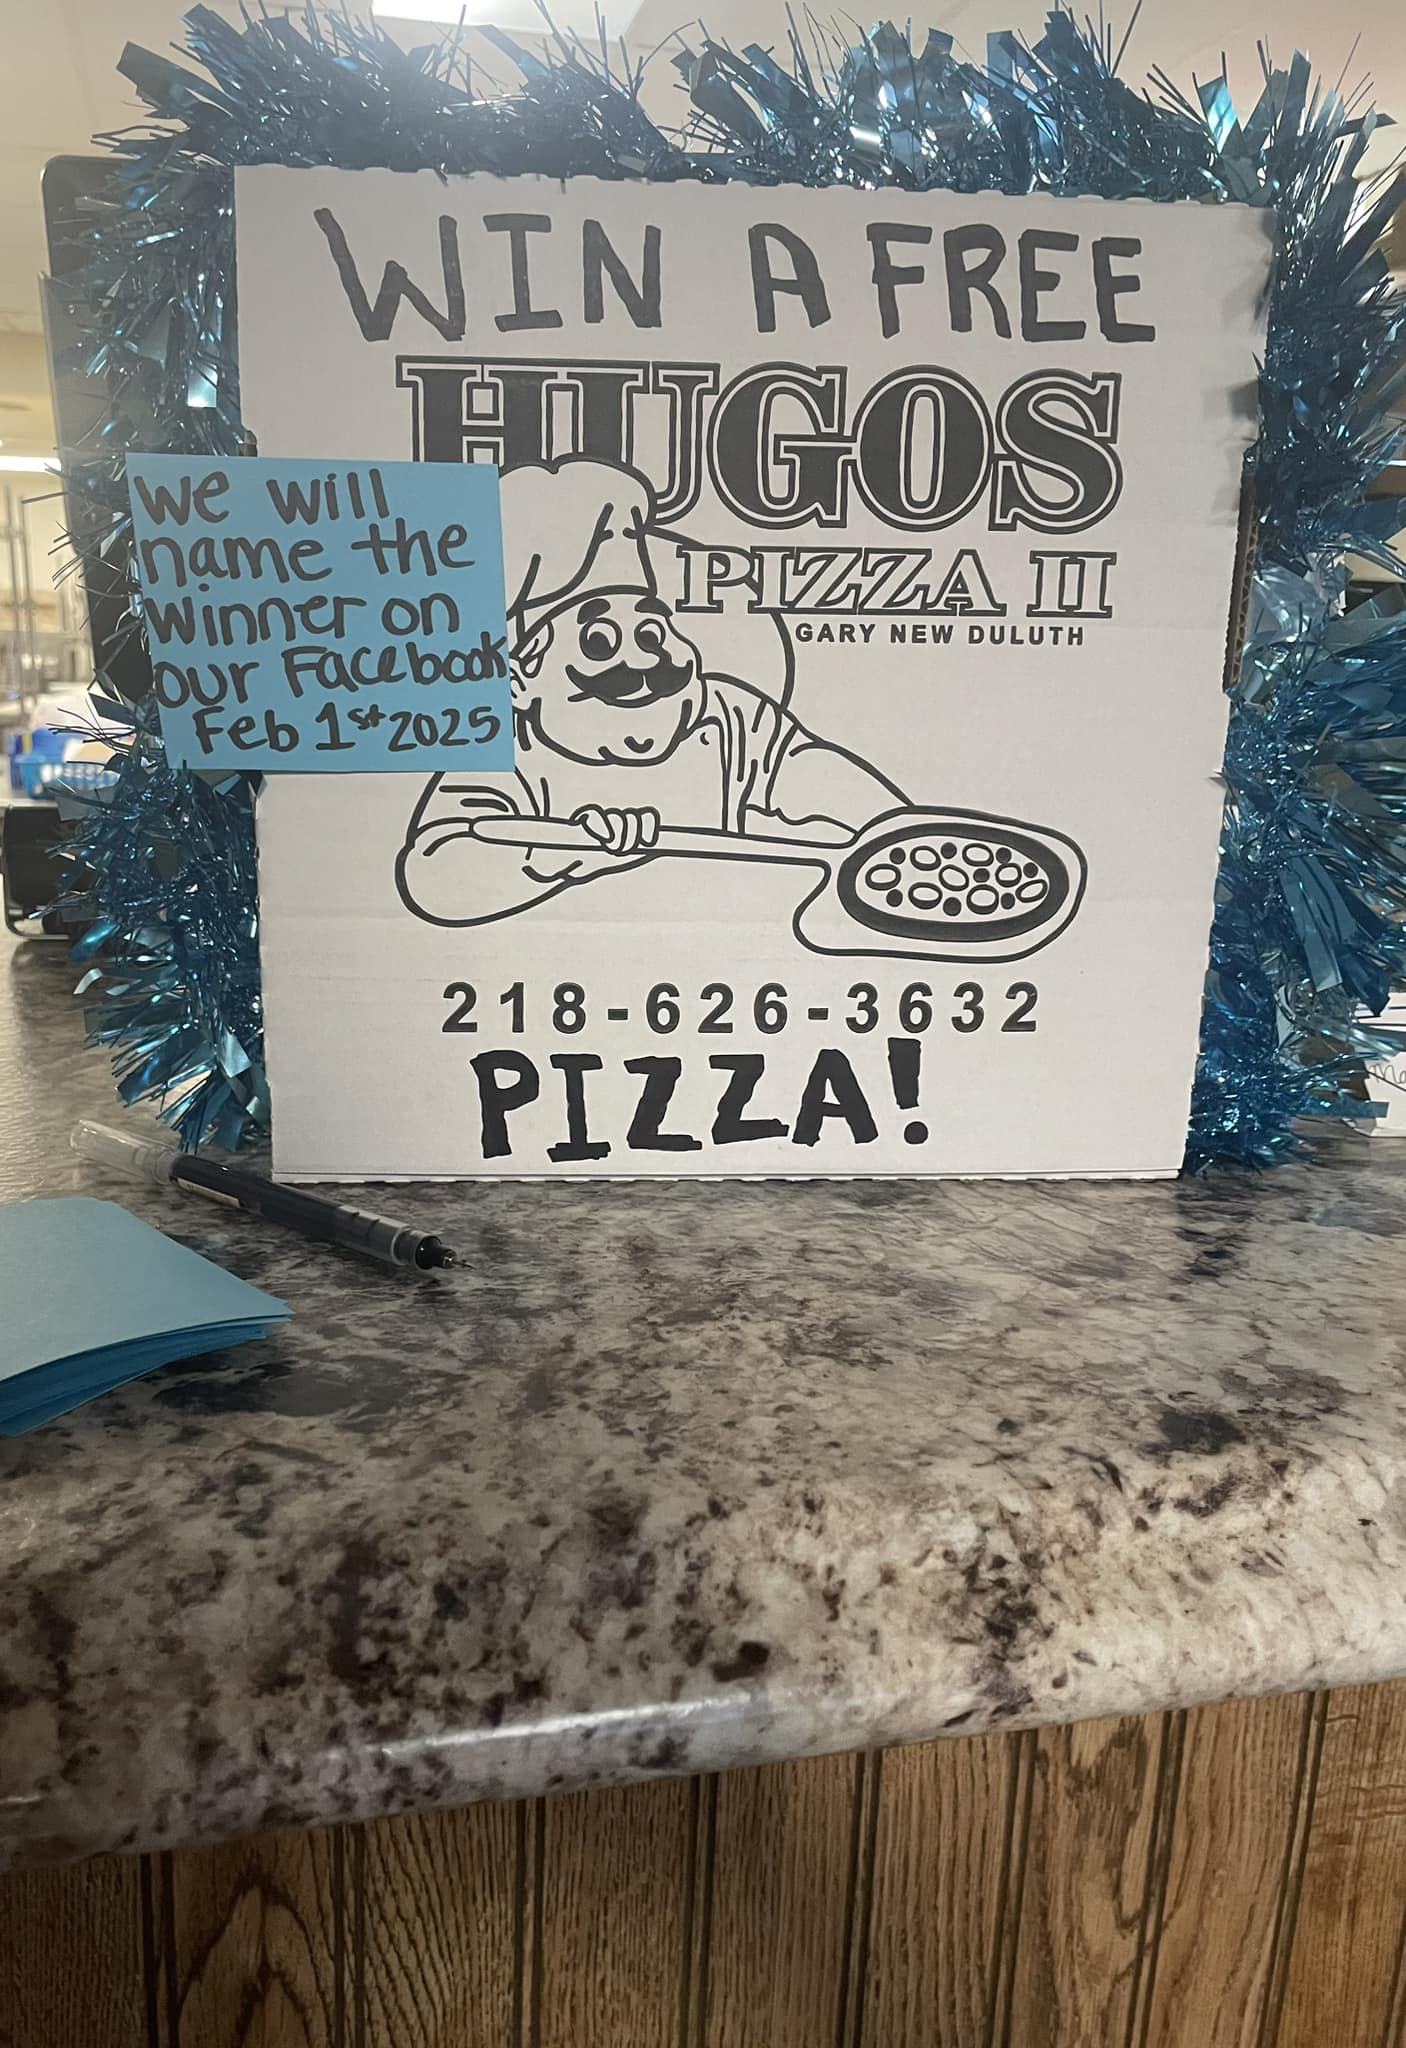 WIN A FREE
HUGOS
PIZZA II
GARY NEW DULUTH
we will
name the
winner on
our Facebook
Feb 1st 2025
218-626-3632
PIZZA!